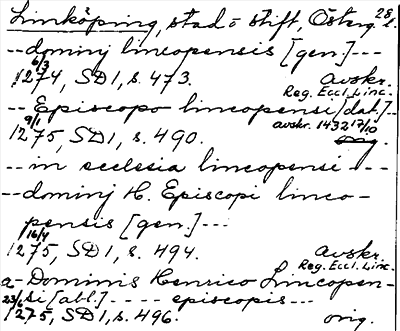 Linköping, stad o stift, Österg. l. 28
-- dominj lincopensis [gen.] ---
6/3 1274, SD 1, s. 473. avskr. Reg. Eccl. Linc.
-- Episcopo lincopensi [dat.] --
9/1 1275, SD 1, s. 490. avskr. 1432 17/10 orig.
-- in ecclesia lincopensi ----
-- dominj H. Episcopi linco-
pensis [gen.] ---
16/4 1275, SD 1, s. 494. avskr. Reg. Eccl. Linc.
a - Dominis Henrico Lincopen-
si [abl.] ---- episcopis ---
23/6 1275, SD 1, s. 496. orig.